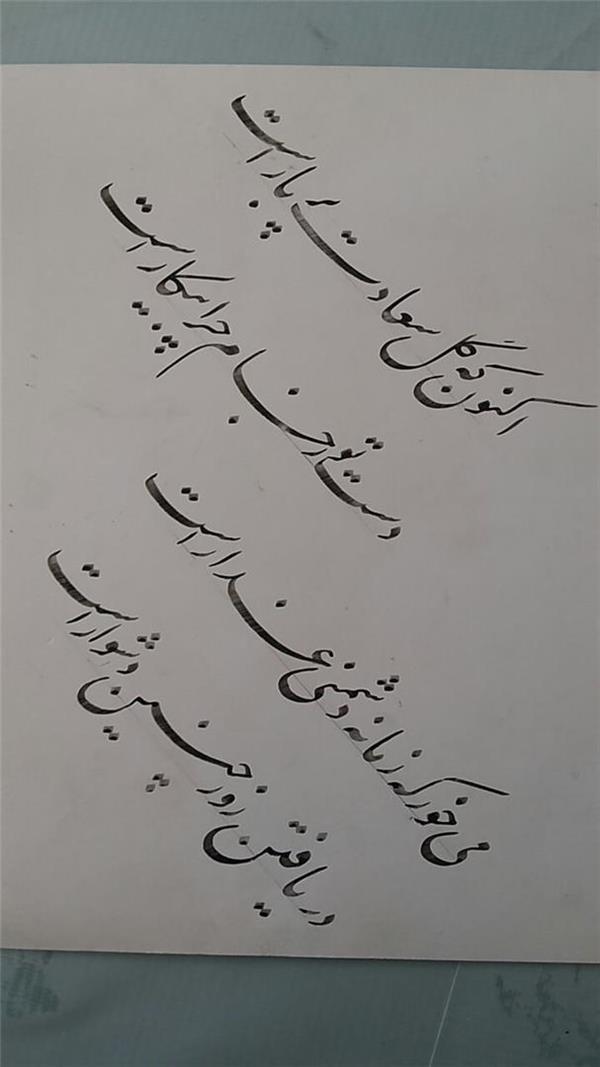 اکنون که گل سعادت پربار است
دست تو ز جام می چرا بیکار است
می خور که زمانه دشمنی غدار است
دریافتن روز چنین دشوار است